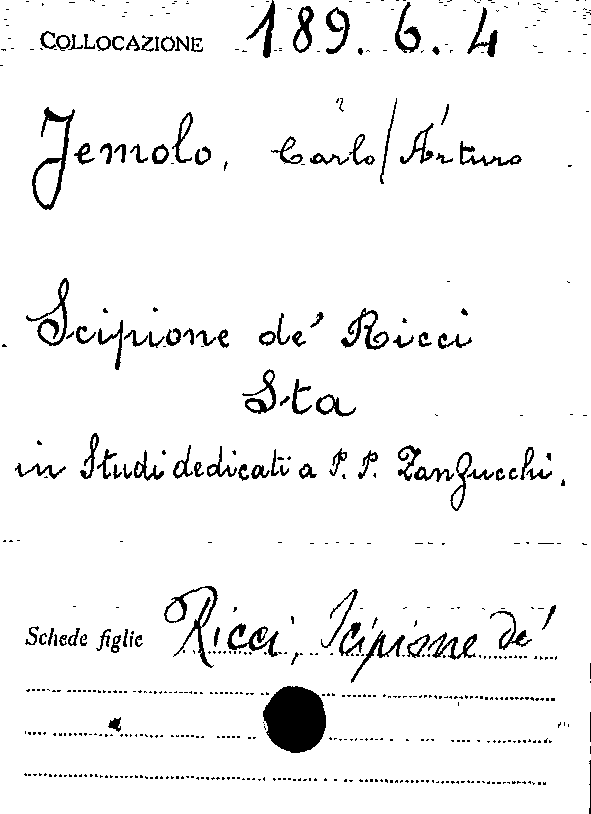 COLLOCAZIONE 189.6.4
Jemolo, Carlo/Arturo
Scipione de' Ricci
Sta
in Studi dedicati a P. P. Zanzucchi.
Schede figlie Ricci, Scipione de'